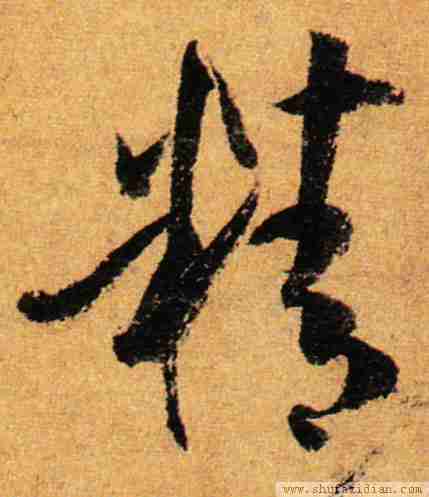 精
www.shufazidian.com